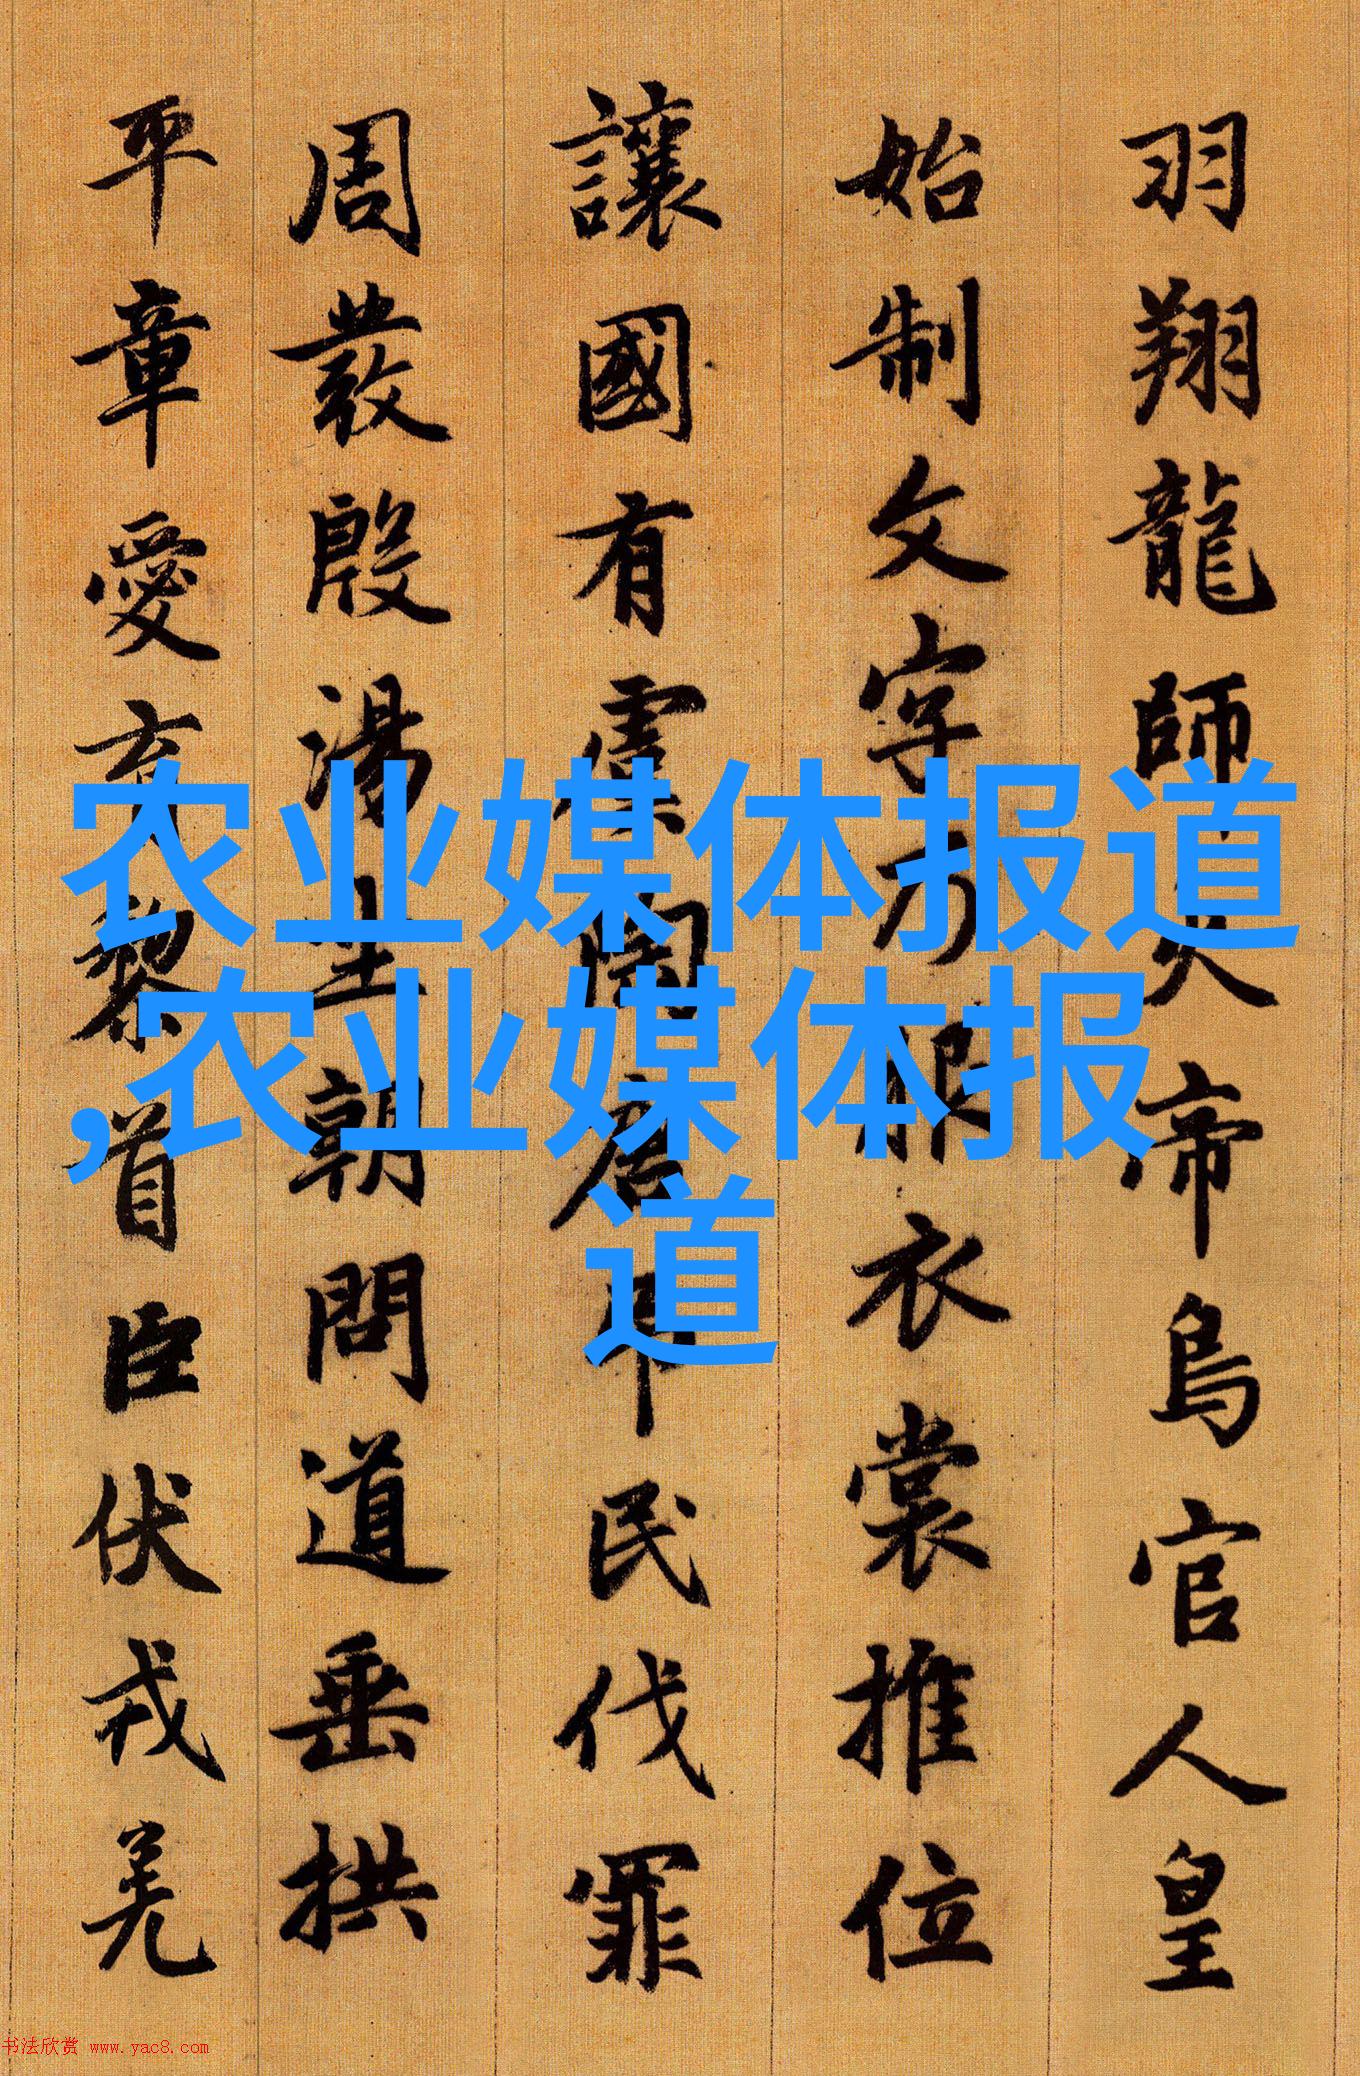 羽翔龍師火帝鳥官人皇
始制文字乃服衣裳推位
讓國有虞陶唐弔民伐罪
周發殷湯坐朝問道垂拱
平章愛育黎首臣伏戎羌
农业媒体报道
,农业媒体报
道
书法欣赏 www.yac8.com